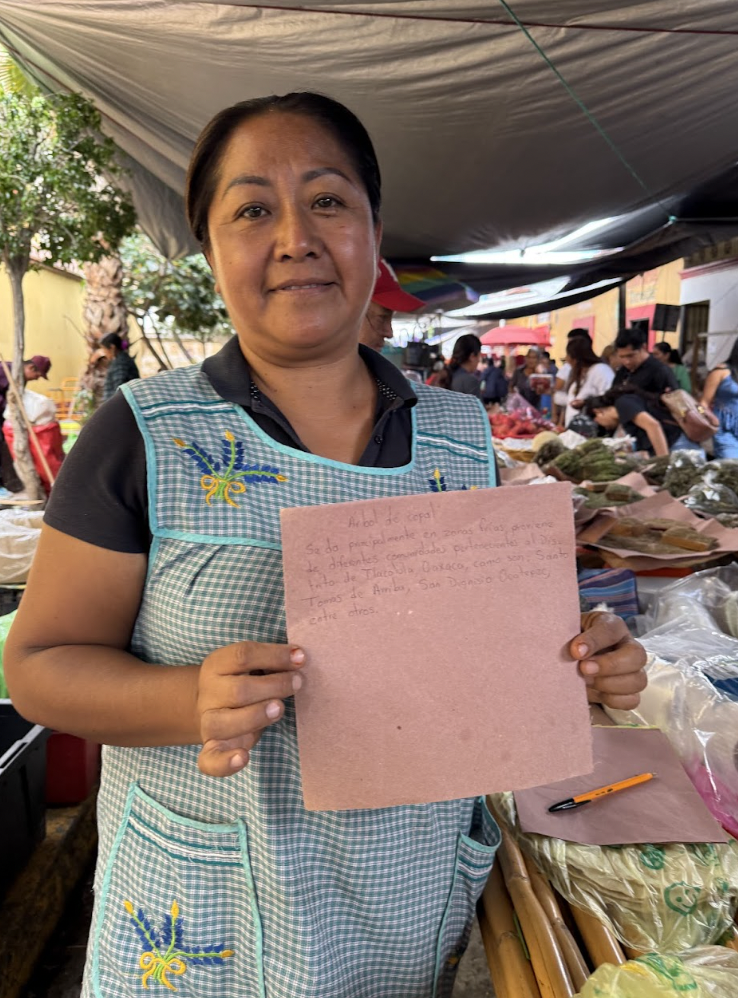 Arbol de copal
Se da principalmente en zonas frias, proviene
de diferentes comunidades pertenecientes al Dis-
trito de Tlacolula Oaxaca, como son: Sant
Tomas de Arriba, San Dionisio Ocotepec,
entre otros.